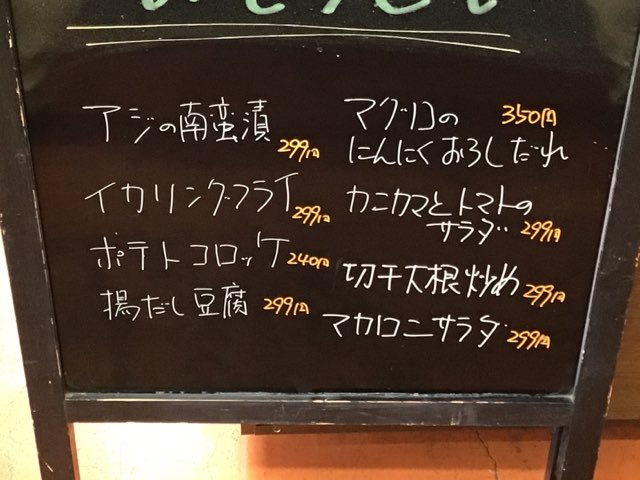 アジの南蛮漬 299円
イカリングフライ 299円
ポテトコロッケ 240円
揚だし豆腐 299円
マグロの 350円
にんにくおろしだれ
カニカマとトマトの
サラダ 299円
切干大根炒め 299円
マカロニサラダ 299円